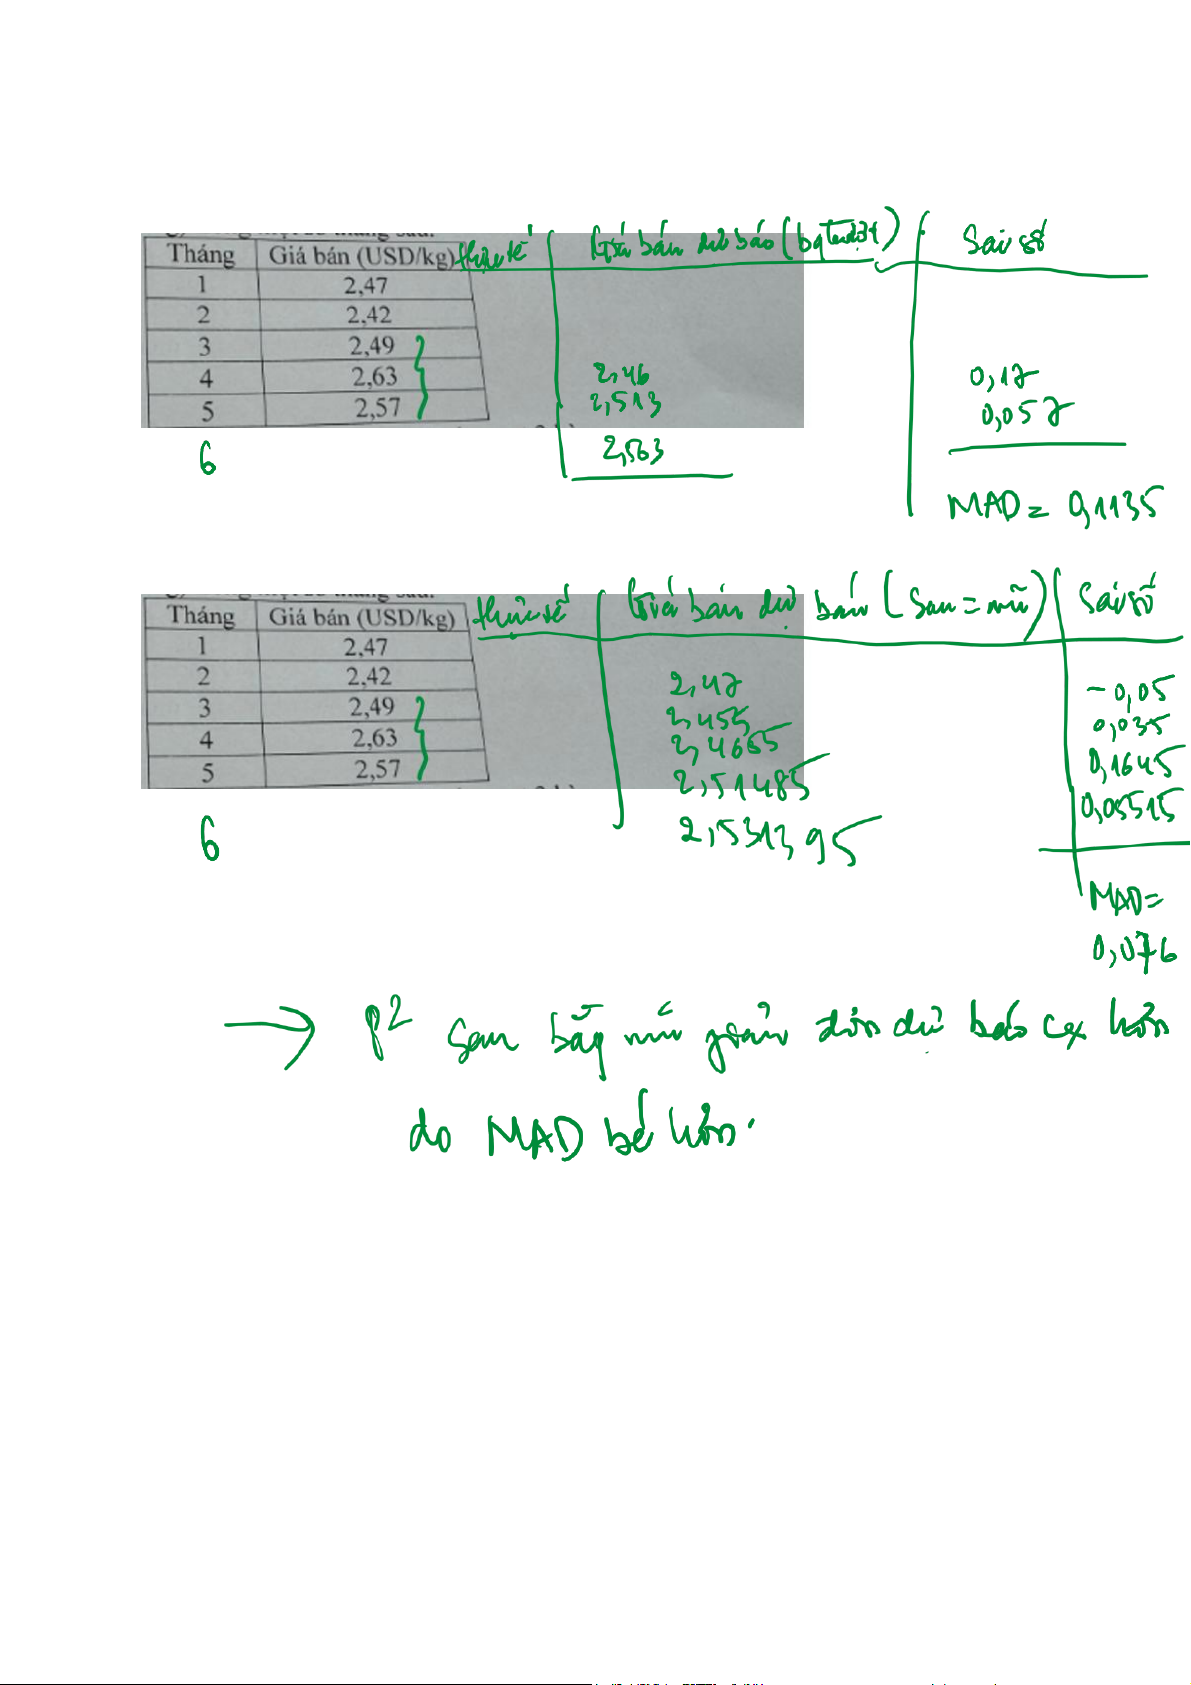 Tháng Giá bán (USD/kg) thực tế Giá bán dự báo (bq trượt) Sai số
1 2,47
2 2,42
3 2,49
4 2,63 2,46 0,17
5 2,57 2,513 0,057
6 2,563
MAD = 0,1135
Tháng Giá bán (USD/kg) thực tế Giá bán dự báo (San = mũ) Sai số
1 2,47
2 2,42 2,47 -0,05
3 2,49 2,455 0,035
4 2,63 2,4655 0,1645
5 2,57 2,51485 0,05515
6 2,531395
MAD =
0,076
→ p² san bằng mũ giản đơn dự báo cx hơn
do MAD bé hơn.